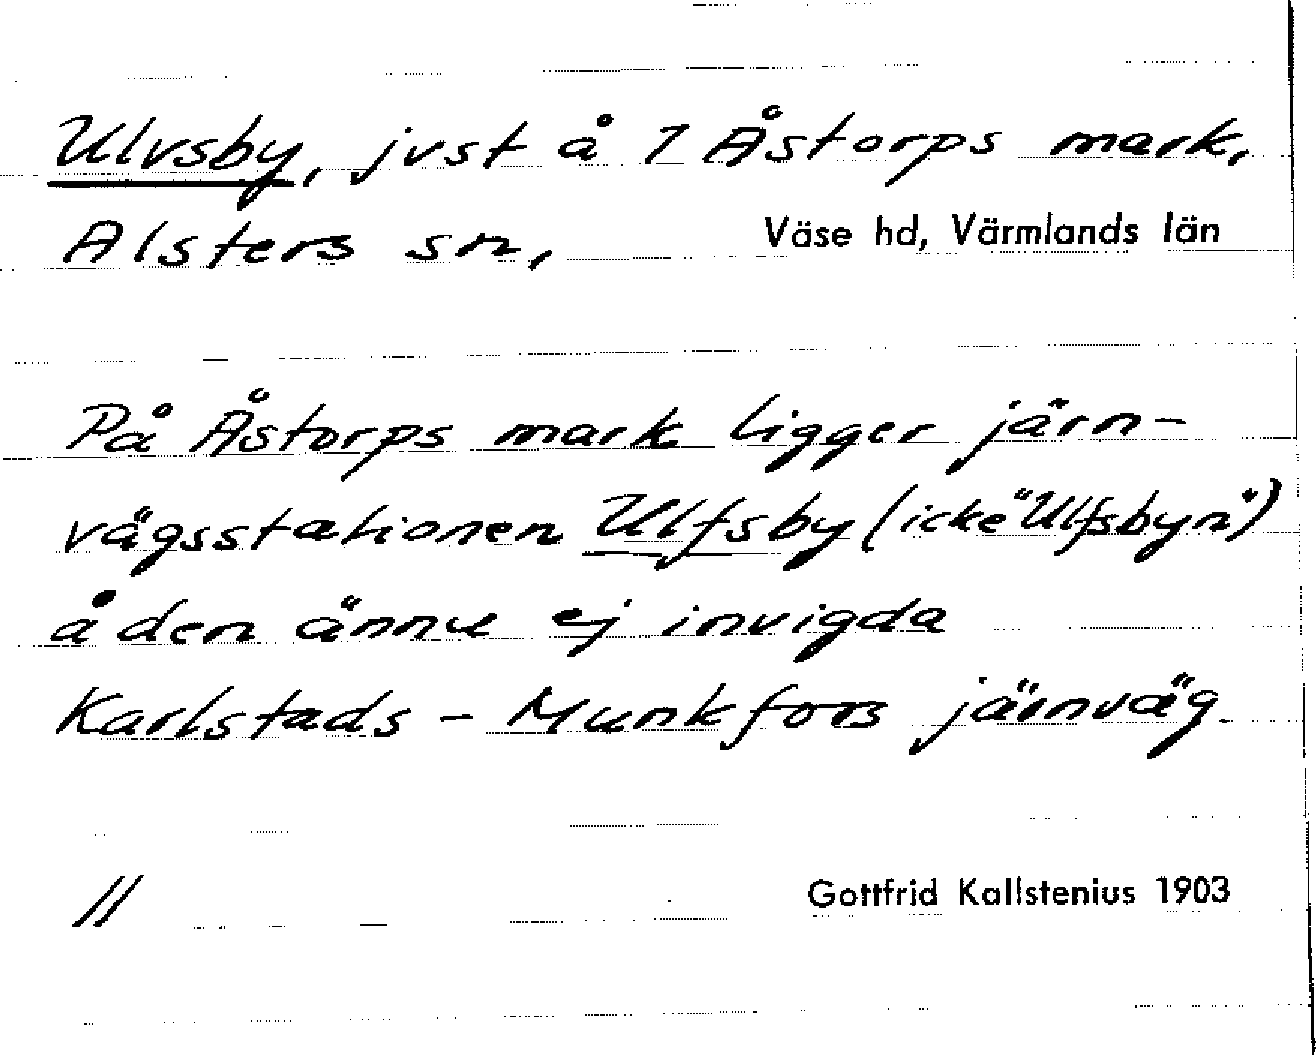 Ulvsby, jvst å 7 Åstorps mark,
Alsters sn, Väse hd, Värmlands län
På Åstorps mark ligger järn-
vägsstationen Ulfsby (icke "Ulfsbyn")
å den ännu ej invigda
Karlstads - Munkfors järnväg.
// Gottfrid Kallstenius 1903